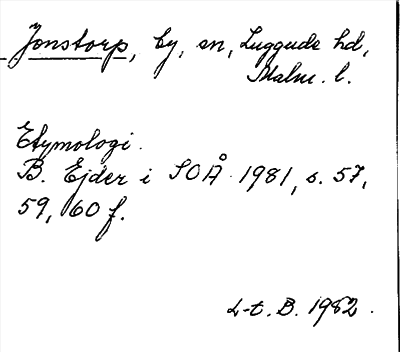 Jonstorp, by, sn, Luggude hd,
Malm. l.
Etymologi.
B. Ejder i SOÅ 1981, s. 57,
59, 60 f.
L-t. B. 1982.